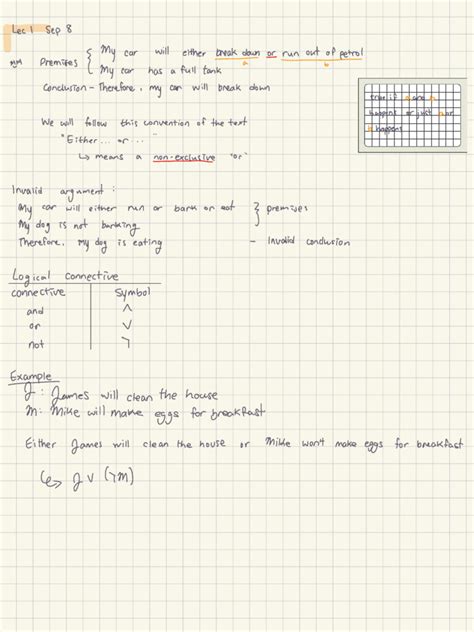 Lec 1 Sep 8
Premises { My car will either break down or run out of petrol
a b
My car has a full tank
Conclusion - Therefore, my car will break down
true if a and b
happens or just a or
b happens
We will follow this convention of the text
"Either ... or ..."
↳ means a non-exclusive "or"
Invalid argument:
My car will either run or bark or eat } premises
My dog is not barking
Therefore, My dog is eating - Invalid conclusion
Logical Connective
connective Symbol
and ∧
or ∨
not ¬
Example
J: James will clean the house
M: Mike will make eggs for breakfast
Either James will clean the house or Mike won't make eggs for breakfast
↳ J ∨ (¬M)